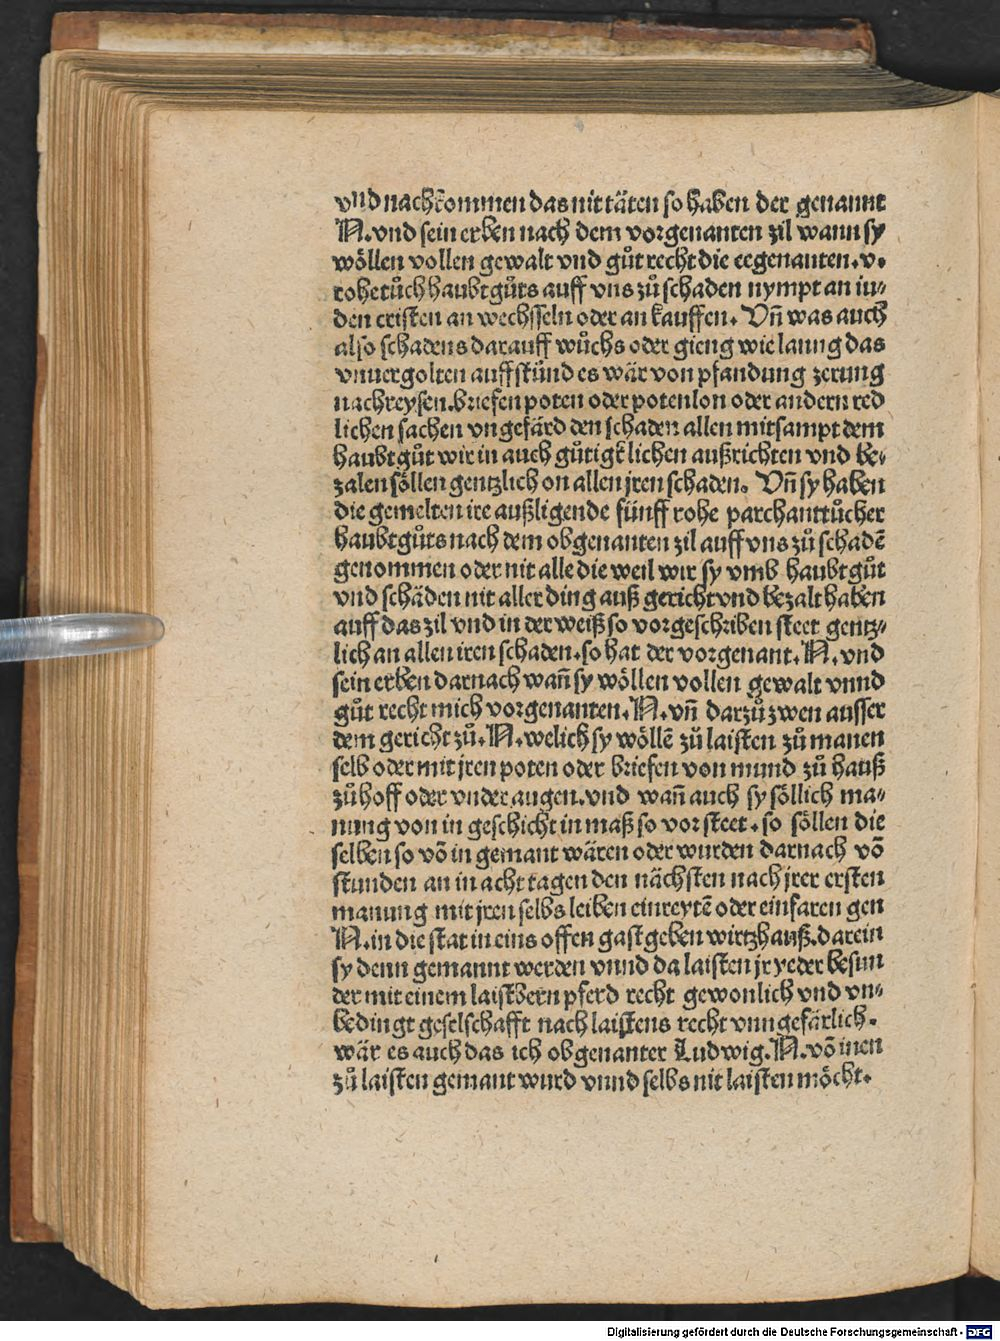 vnd nachkommen das nit täten so haben der genannt
N. vnd sein erben nach dem vorgenanten zil wann sy
wöllen vollen gewalt vnd gůt recht die eegenanten .v.
rohe tůch haubtgůts auff vns zů schaden nympt an iu-
den cristen an wechsseln oder an kauffen. Vn̄ was auch
also schadens darauff wůchs oder gieng wie lanng das
vnuergolten auffstůnd es wär von pfandung zerung
nachreysen. briefen poten oder potenlon oder andern red
lichen sachen vngefärd den schaden allen mitsampt dem
haubtgůt wir in auch gůtigklichen außrichten vnd be-
zalen söllen gentzlich on allen jren schaden. Vn̄ sy haben
die gemelten ire außligende fünff rohe parchanttůcher
haubtgůts nach dem obgenanten zil auff vns zů schadē
genommen oder nit alle die weil wir sy vmb haubtgůt
vnd schäden nit aller ding auß gericht vnd bezalt haben
auff das zil vnd in der weiß so vorgeschriben steet gentz-
lich an allen iren schaden. so hat der vorgenant. N. vnd
sein erben darnach wan̄ sy wöllen vollen gewalt vnnd
gůt recht mich vorgenanten. N. vn̄ darzů zwen ausser
dem gericht zů. N. welich sy wöllē zů laisten zů manen
selb oder mit jren poten oder briefen von mund zů hauß
zů hoff oder vnder augen. vnd wan̄ auch sy söllich ma-
nung von in geschicht in maß so vor steet. so söllen die
selben so vō in gemant wären oder wurden darnach vō
stunden an in acht tagen den nächsten nach jrer ersten
manung mit jren selbs leiben einreytē oder einfaren gen
N. in die stat in eins offen gastgeben wirtzhauß. darein
sy denn gemannt werden vnnd da laisten jr yeder besun
der mit einem laistbern pferd recht gewonlich vnd vn-
bedingt geselschafft nach laistens recht vnngefärlich.
wär es auch das ich obgenanter Ludwig. N. vō inen
zů laisten gemant wurd vnnd selbs nit laisten möcht.
Digitalisierung gefördert durch die Deutsche Forschungsgemeinschaft - DFG